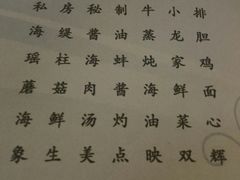 私房秘制牛小排
海缇酱油蒸龙胆
瑶柱海蚌炖家鸡
蘑菇肉酱海鲜面
海鲜汤灼油菜心
象生美点映双辉